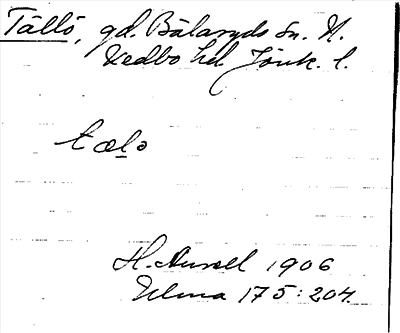 Tällö, gd. Bälaryds sn. N.
Vedbo hd Jönk. l.
tælo
H. Aurell 1906
Ulma 175:204.